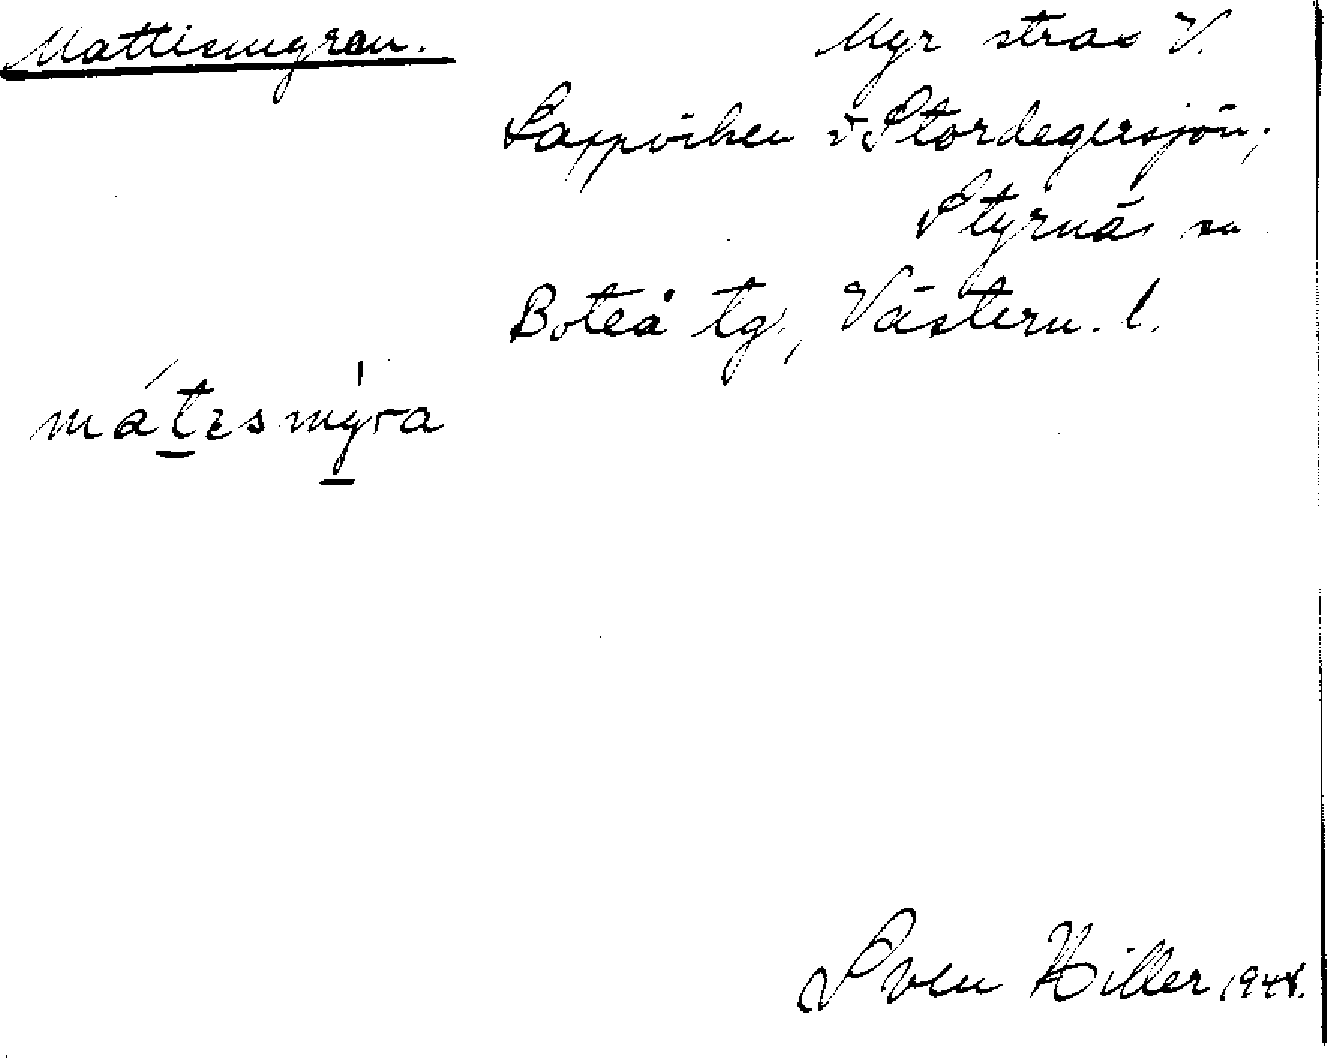 Mattismyran. Myr strax V.
Lappviken i Stordegersjön,
Styrnäs sn
Boteå tg., Västern. l.
mátesmýra
Sven Hiller 1948.